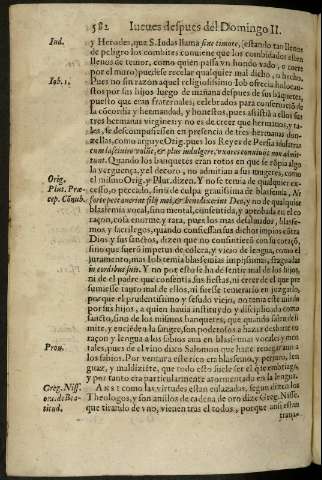 582 Iueues despues del Domingo II.
Iud. y Herodes, que S. Iudas llama sine timore, (estando tan llenos
de peligro los combites conuiene que los combidados esten
llenos de temor, como quien passa vn hondo vado, o corre
por el muro) puedese rezelar qualquier mal dicho, o hecho.
Iob. 1. Pues no sin razon aquel religiosissimo Iob ofrecia holocau-
stos por sus hijos luego de mañana despues de sus bãquetes,
puesto que eran fraternales, celebrados para conseruaciõ de
la cõcordia y hermandad, y honestos, pues assistiã a ellos sus
tres hermanas virgines: y no es de creer que hermanos, y ta-
les, se descompusiessen en presencia de tres hermanas don-
zellas, como arguye Orig. pues los Reyes de Persia
cum lasciuire vollẽt, & plus indulgere, vxores conuiuio non admit-
tunt. Quando los banquetes eran rotos en que se rõpia algo
la verguença, y el decoro, no admitian a sus mugeres, como
Orig. el mismo Orig. y Plut. dizen. Y no se temia de qualquier ex-
Plut. Præ- cesso, o peccado, sino de culpa grauissima de blasfemia, Ne
cep. Cõiub. forte peccauerint filij mei, & benedixerint Deo, y no de qualquier
blasfemia vocal, sino mental, consentida, y aprobada en el co
raçon, cosa enorme, y rara, pues los mas deslauados, blasfe-
mos, y sacrilegos, quando confiessan sus dichos impios cõtra
Dios y sus sanctos, dizen que no consintierõ con lo coraçõ,
sino que fuerõ impetus de colera, y vicio de lengua, como el
juramento, mas Iob temia blasfemias impijssimas, fraguadas
in cordibus suis. Y no por esto se ha de sentir mal de los hijos,
ni de el padre que consentia sus fiestas, ni creer de el que pre
sumiesse tanto mal de ellos, ni fuesse temerario en juzgarlo,
porque el prudentissimo y sesudo viejo, no temia este mal
por sus hijos, a quien hauia instituydo y disciplinado como
sancto, sino de los mismos banquetes, que quando salen de li
mite, y enciẽden la sangre, son poderosos a hazer desbarar el
raçon y lengua a los sabios aun en blasfemias vocales y mẽ
Prou. tales, pues de el vino dixo Salomon que haze renegar aun a
los sabios. Por ventura estoico era blasfemo, y perjuro, len
guaz, y maldiziẽte, que todo esto suele ser el que embriaga,
y por tanto era particularmente atormentado en la lengua.
Greg. Niss. ANSI como las virtudes estan enlazadas, segun dizen los
ora. de Bea- Theologos, y son anillos de cadena de oro dize Greg. Nisse.
titud. que tirando de vno, vienen tras el todos, porque ansi estan